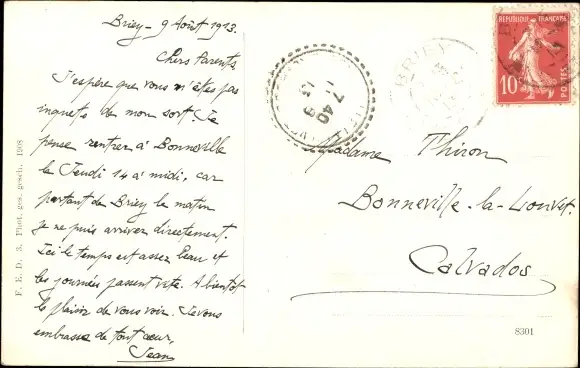 Briey - 9 Août 1913.
Chers Parents,
J'espère que vous n'êtes pas
inquiets de mon sort. Je
pense rentrer à Bonneville
le Jeudi 14 à midi, car
partant de Briey le matin
je ne puis arriver directement.
Ici le temps est assez beau et
les journées passent vite. A bientôt
le plaisir de vous voir. Je vous
embrasse de tout cœur,
Jean
F. E. D. 3. Phot. ges. gesch. 1908
BRIEY
7 40
REPUBLIQUE FRANÇAISE
10
POSTES
Madame Thiron
Bonneville-la-Louvet.
Calvados
8301